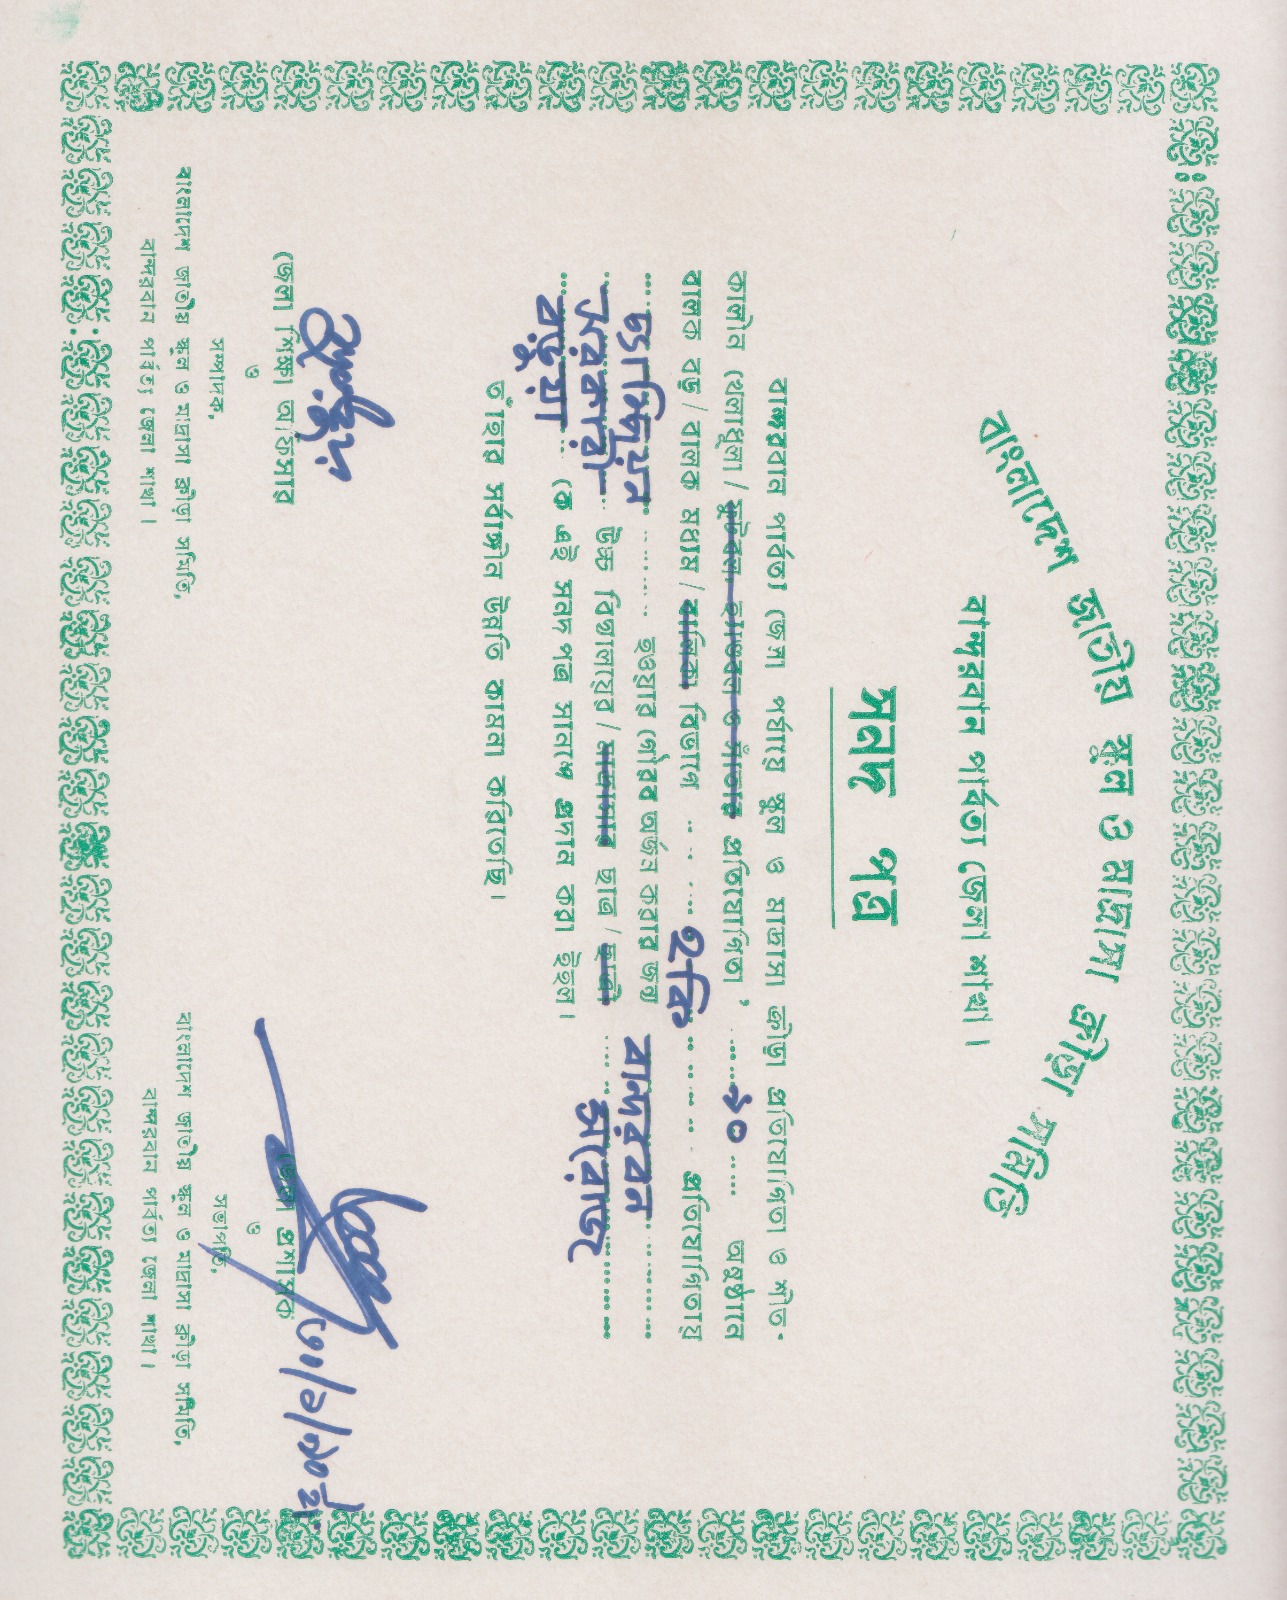 বাংলাদেশ জাতীয় স্কুল ও মাদ্রাসা ক্রীড়া সমিতি
বান্দরবান পার্বত্য জেলা শাখা।
সনদ পত্র
বান্দরবান পার্বত্য জেলা পর্যায়ে স্কুল ও মাদ্রাসা ক্রীড়া প্রতিযোগিতা ও শীত-
কালীন খেলাধূলা / ফুটবল, হ্যাণ্ডবল ও সাঁতার প্রতিযোগিতা ’ ৯০ অনুষ্ঠানে
বালক বড় / বালক মধ্যম / বালিকা বিভাগে হকি প্রতিযোগিতায়
চ্যাম্পিয়ন হওয়ার গৌরব অর্জন করার জন্য বান্দরবন
সরকারী উচ্চ বিদ্যালয়ের / মাদ্রাসার ছাত্র / ছাত্রী সরোজ
বড়ুয়া কে এই সনদ পত্র সানন্দে প্রদান করা ইহল।
তাঁহার সর্বাঙ্গীন উন্নতি কামনা করিতেছি।
৩০/১/৯০ ইং
জেলা শিক্ষা অফিসার
ও
সম্পাদক,
বাংলাদেশ জাতীয় স্কুল ও মাদ্রাসা ক্রীড়া সমিতি,
বান্দরবান পার্বত্য জেলা শাখা।
জেলা প্রশাসক
ও
সভাপতি,
বাংলাদেশ জাতীয় স্কুল ও মাদ্রাসা ক্রীড়া সমিতি,
বান্দরবান পার্বত্য জেলা শাখা।